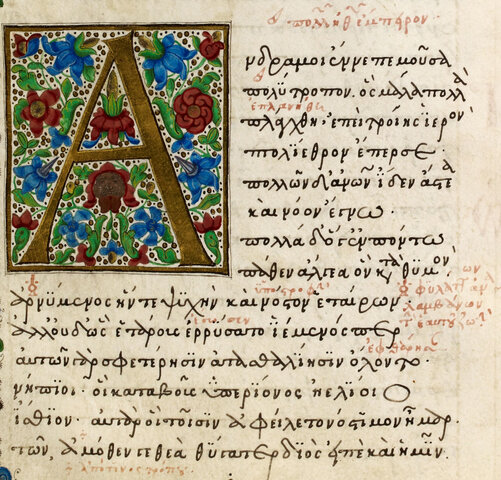 Ἄνδρα μοι ἔννεπε μοῦσα
πολύτροπον. ὃς μάλα πολλὰ
ἐπλανήθη
πλάγχθη. ἐπεὶ τροίης ἱερὸν
πτολίεθρον ἔπερσε
πολλῶν δ' ἀνῶν ἴδεν ἄστεα
καὶ νόον ἔγνω
πολλὰ δ' ὅγ' ἐν πόντω
πάθεν ἄλγεα ὃν κατὰ θυμὸν
ἀρνύμενος ἥν τε ψυχὴν καὶ νόστον ἑταίρων
ἀλλ' οὐδ' ὣς ἑτάρους ἐρρύσατο ἱέμενός περ
αὐτῶν γὰρ σφετέρησιν ἀτασθαλίησιν ὄλοντο
νήπιοι. οἳ κατὰ βοῦς ὑπερίονος ἠελίοιο
ἤσθιον. αὐτὰρ ὁ τοῖσιν ἀφείλετο νόστιμον ἦμαρ
τῶν ἁμόθεν γε θεὰ θύγατερ διὸς εἰπὲ καὶ ἡμῖν.
ἀπό τινος τρόπου